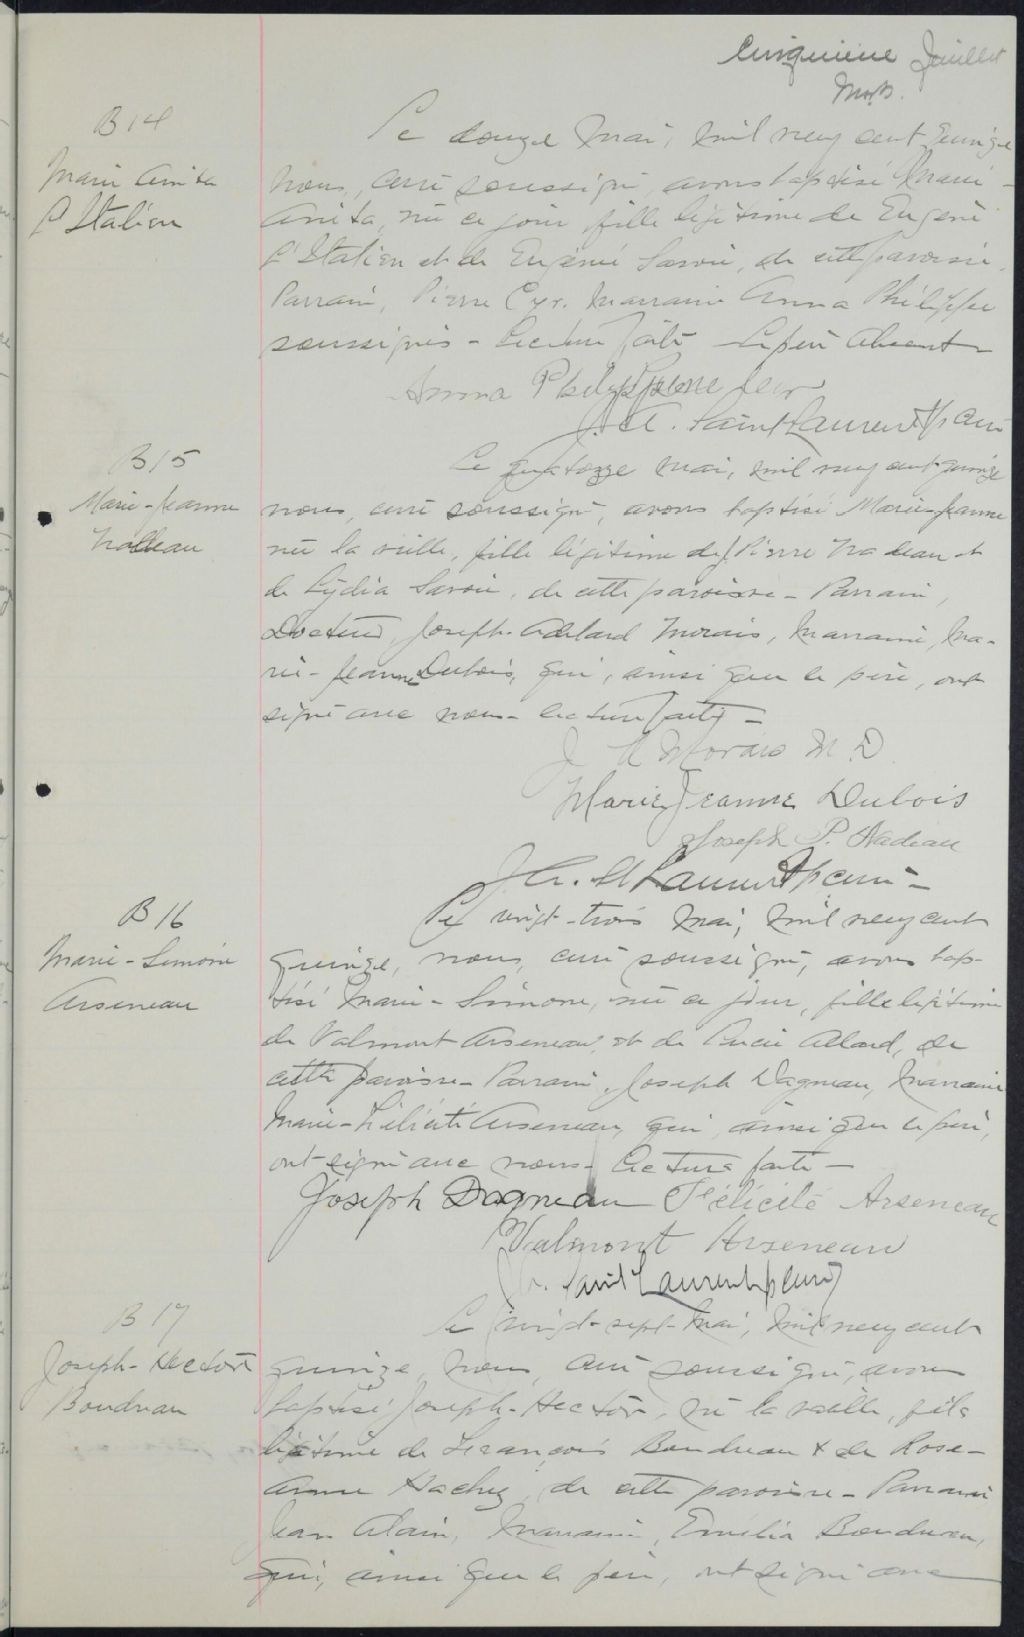 Cinquième Juillet
B 14
Marie Anita
L'Italien
Le douze Mai, mil neuf cent quinze
nous, curé soussigné, avons baptisé Marie-
Anita, née ce jour, fille légitime de Eugène
L'Italien et de Eugénie Savoie, de cette paroisse.
Parrain, Pierre Cyr. Marraine Anna Philippe
soussignés - Lecture faite Le père absent
Anna Cyr
J. A. Saint Laurent Ptre curé
B 15
Marie-Jeanne
Nadeau
Le quatorze mai, mil neuf cent quinze
nous, curé soussigné, avons baptisé Marie-Jeanne
née la veille, fille légitime de J Pierre Nadeau et
de Lydia Savoie, de cette paroisse - Parrain,
Docteur, Joseph-Adélard Morais, Marraine, Ma-
rie-Jeanne Dubois, qui, ainsi que le père, ont
signé avec nous - lecture faite -
J A Morais M. D.
Marie Jeanne Dubois
Joseph P. Nadeau
J. A. St Laurent Ptre curé -
B 16
Marie-Simone
Arseneau
Le vingt-trois Mai, mil neuf cent
quinze, nous, curé soussigné, avons bap-
tisé Marie-Simone, née ce jour, fille légitime
de Valmont Arseneau, et de Lucie Allard, de
cette paroisse - Parrain, Joseph Dagneau, Marraine
Marie-Félicité Arseneau, qui, ainsi que le père,
ont signé avec nous - Lecture faite -
Joseph Dagneau Félicité Arseneau
Valmont Arseneau
J. A. Saint Laurent ptre curé
B 17
Joseph-Hector
Boudreau
Le vingt-sept Mai, mil neuf cent
quinze, nous, curé soussigné, avons
baptisé Joseph-Hector, né la veille, fils
légitime de François Boudreau & de Rose-
Anna Hachey, de cette paroisse - Parrain
Jean Alain, Marraine, Emélia Boudreau,
qui, ainsi que le père, ont signé avec